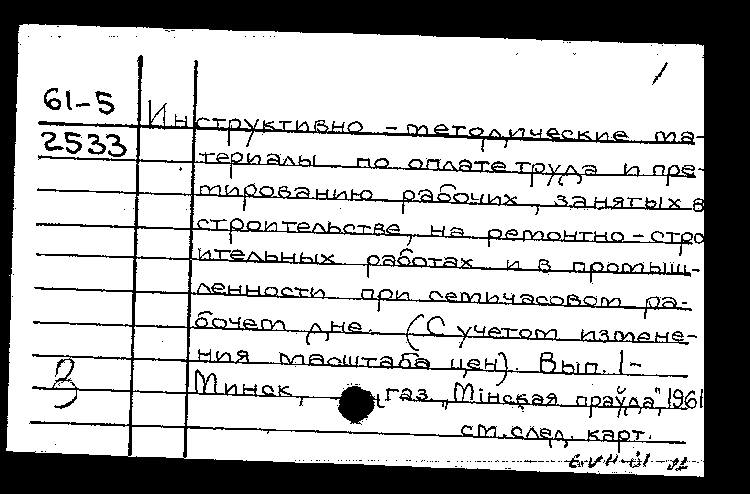 61-5
2533
Инструктивно-методические ма-
териалы по оплате труда и пре-
мированию рабочих, занятых в
строительстве, на ремонтно-стро
ительных работах и в промыш-
ленности при семичасовом ра-
бочем дне. (С учетом измене-
ния масштаба цен). Вып. 1-
Минск, газ „Мінская праўда", 1961
см. след. карт.